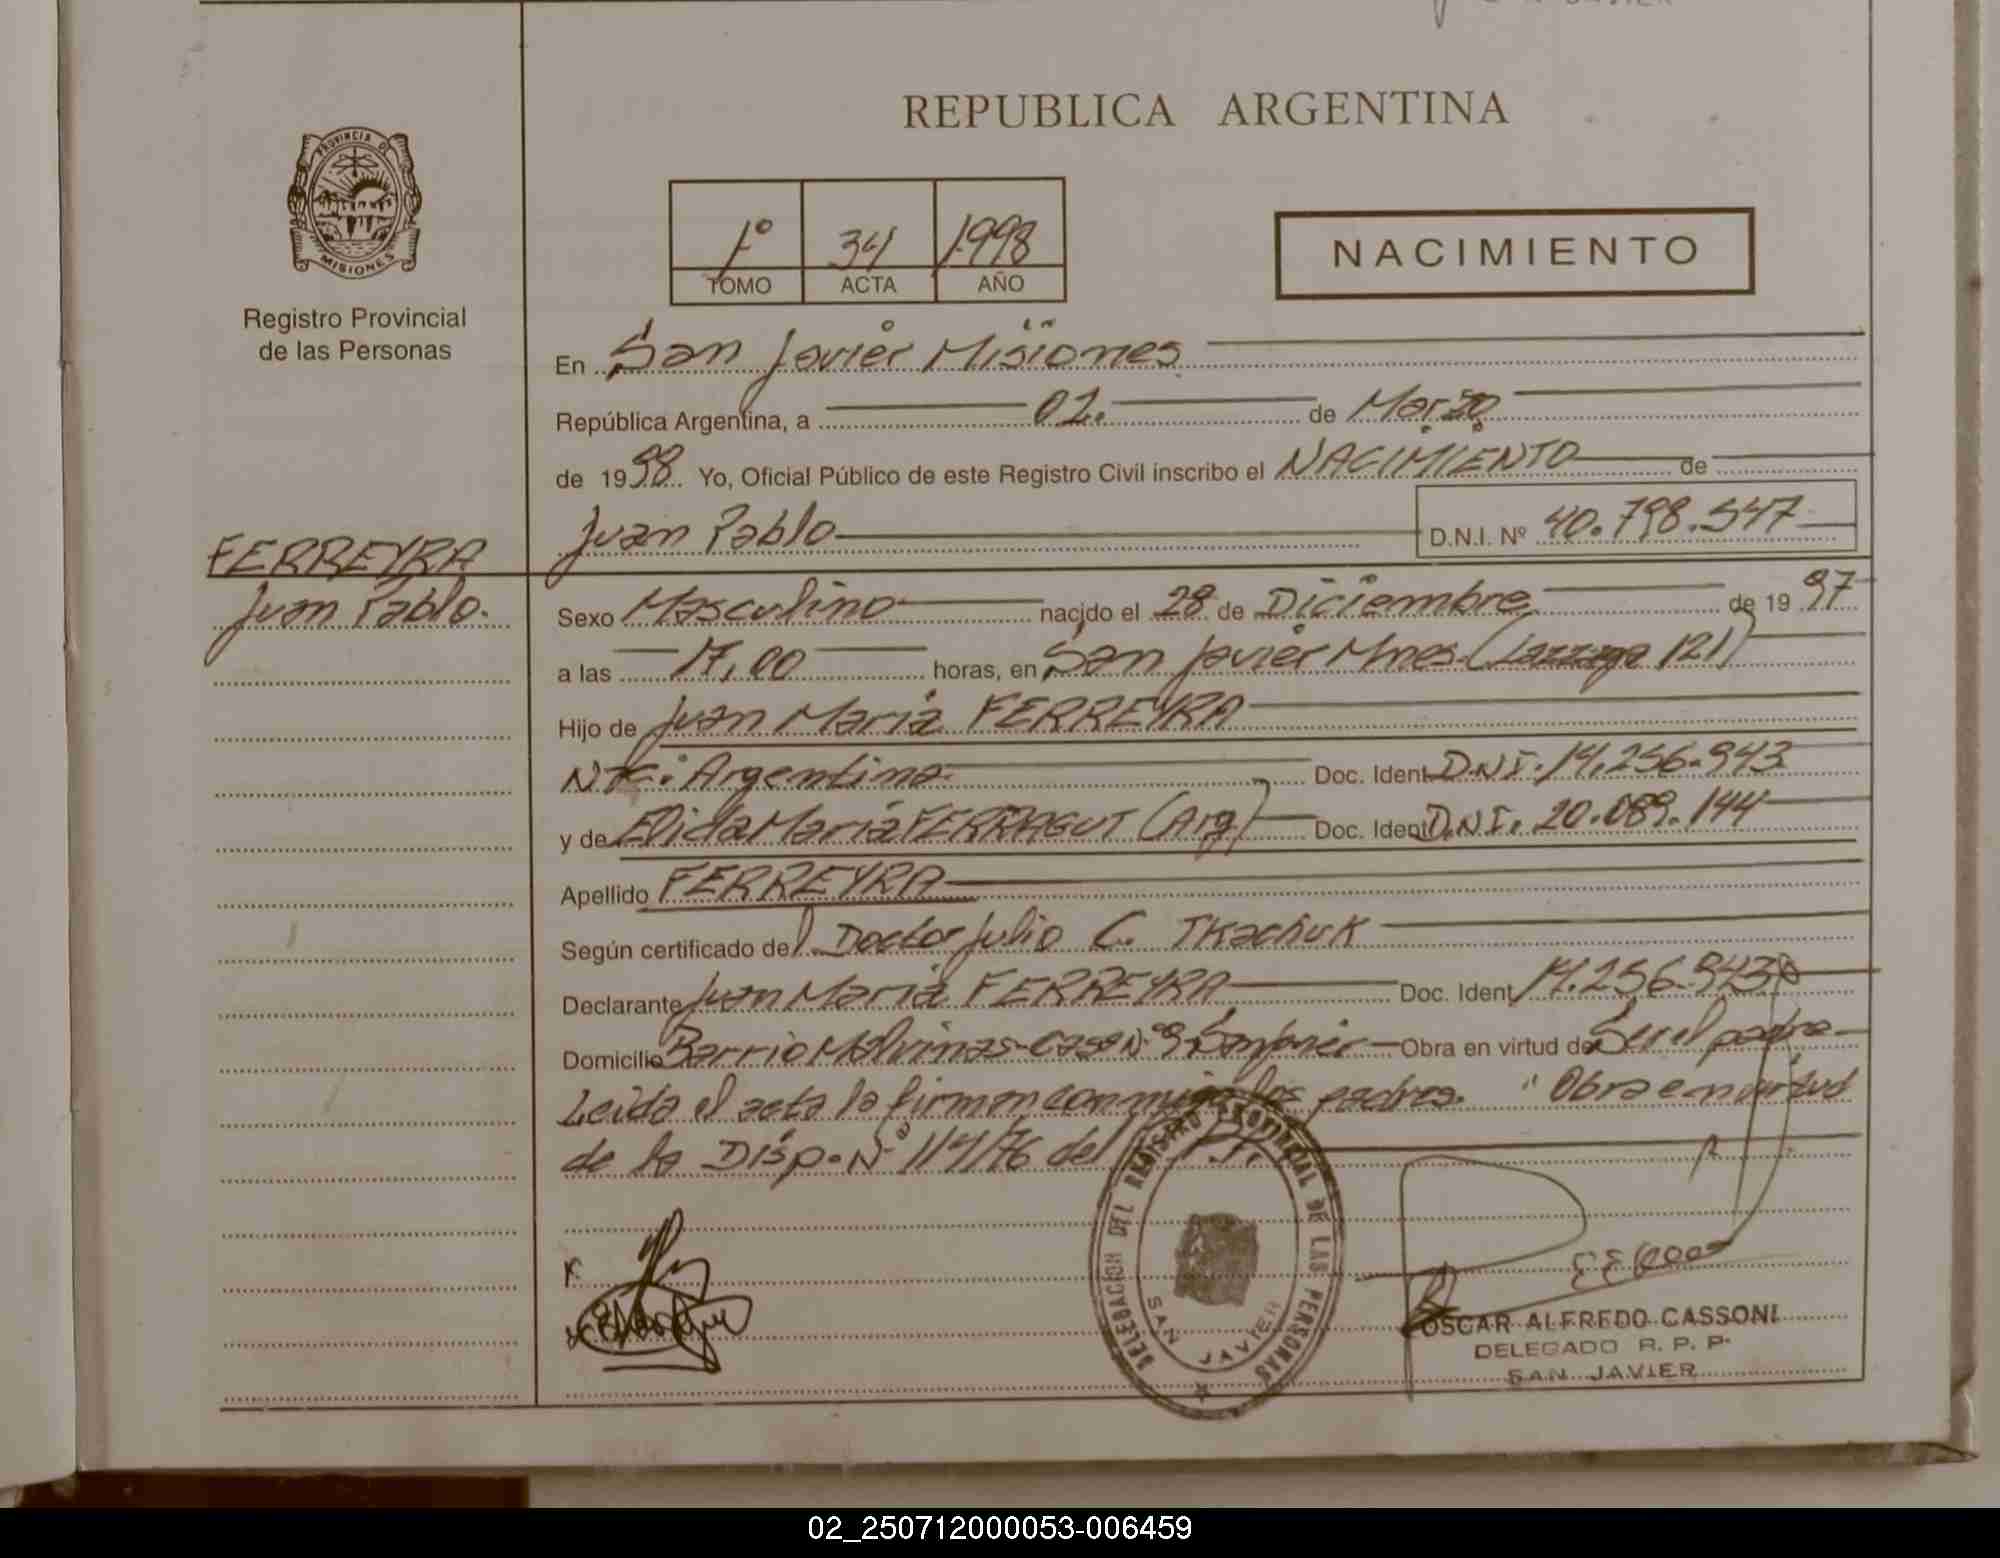 REPUBLICA ARGENTINA
PROVINCIA DE
MISIONES
Registro Provincial
de las Personas
1º 34 1998
TOMO ACTA AÑO
NACIMIENTO
En San Javier Misiones
República Argentina, a 02. de Marzo
de 1998 Yo, Oficial Público de este Registro Civil inscribo el NACIMIENTO de
Juan Pablo D.N.I. Nº 40.798.547
FERREYRA
Juan Pablo.
Sexo Masculino nacido el 28 de Diciembre de 1997
a las 17,00 horas, en San Javier Mnes ( 121)
Hijo de Juan María FERREYRA
Argentina. Doc. Ident D.N.I. 14.256.943
y de Elida María FERRAGUT (Arg) Doc. Ident D.N.I. 20.089.144
Apellido FERREYRA
Según certificado del Doctor Julio C. Tkachuk
Declarante Juan María FERREYRA Doc. Ident 14.256.943
Domicilio Barrio Malvinas-Casa Nº 9 San Javier Obra en virtud de Ser el padre
Leida el acta la firman conmigo los padres. "Obra en virtud
de la Disp. Nº 114/76 del R.P.P.
DELEGACION DEL REGISTRO PROVINCIAL DE LAS PERSONAS
SAN JAVIER
OSCAR ALFREDO CASSONI
DELEGADO R. P. P.
SAN JAVIER
02_250712000053-006459